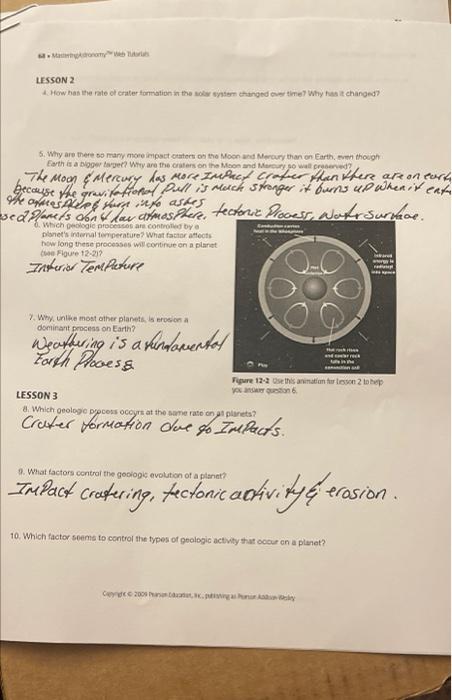 68 • MasteringAstronomy™ Web Tutorials
LESSON 2
4. How has the rate of crater formation in the solar system changed over time? Why has it changed?
5. Why are there so many more impact craters on the Moon and Mercury than on Earth, even though
Earth is a bigger target? Why are the craters on the Moon and Mercury so well preserved?
The Moon & Mercury has more Impact Crater than there are on earth
because the gravitational pull is much stronger it burns up when it
the atmosphere & turn into ashes
Planets don't hav atmosphere, tectonic Process, Water Surface.
6. Which geologic processes are controlled by a
planet's internal temperature? What factor affects
how long these processes will continue on a planet
(see Figure 12-2)?
Interior Tempature
Conduction carries
heat in the lithosphere
Infrared
energy is
radiated
into space
Hot
Hot rock rises
and cooler rock
falls in the
convection cell
Play
7. Why, unlike most other planets, is erosion a
dominant process on Earth?
Weathering is a fundamental
Earth Process
Figure 12-2 Use this animation for Lesson 2 to help
you answer question 6.
LESSON 3
8. Which geologic process occurs at the same rate on all planets?
Crater formation due to Impacts.
9. What factors control the geologic evolution of a planet?
Impact cratering, tectonic activity & erosion.
10. Which factor seems to control the types of geologic activity that occur on a planet?
Copyright © 2009 Pearson Education, Inc., publishing as Pearson Addison-Wesley